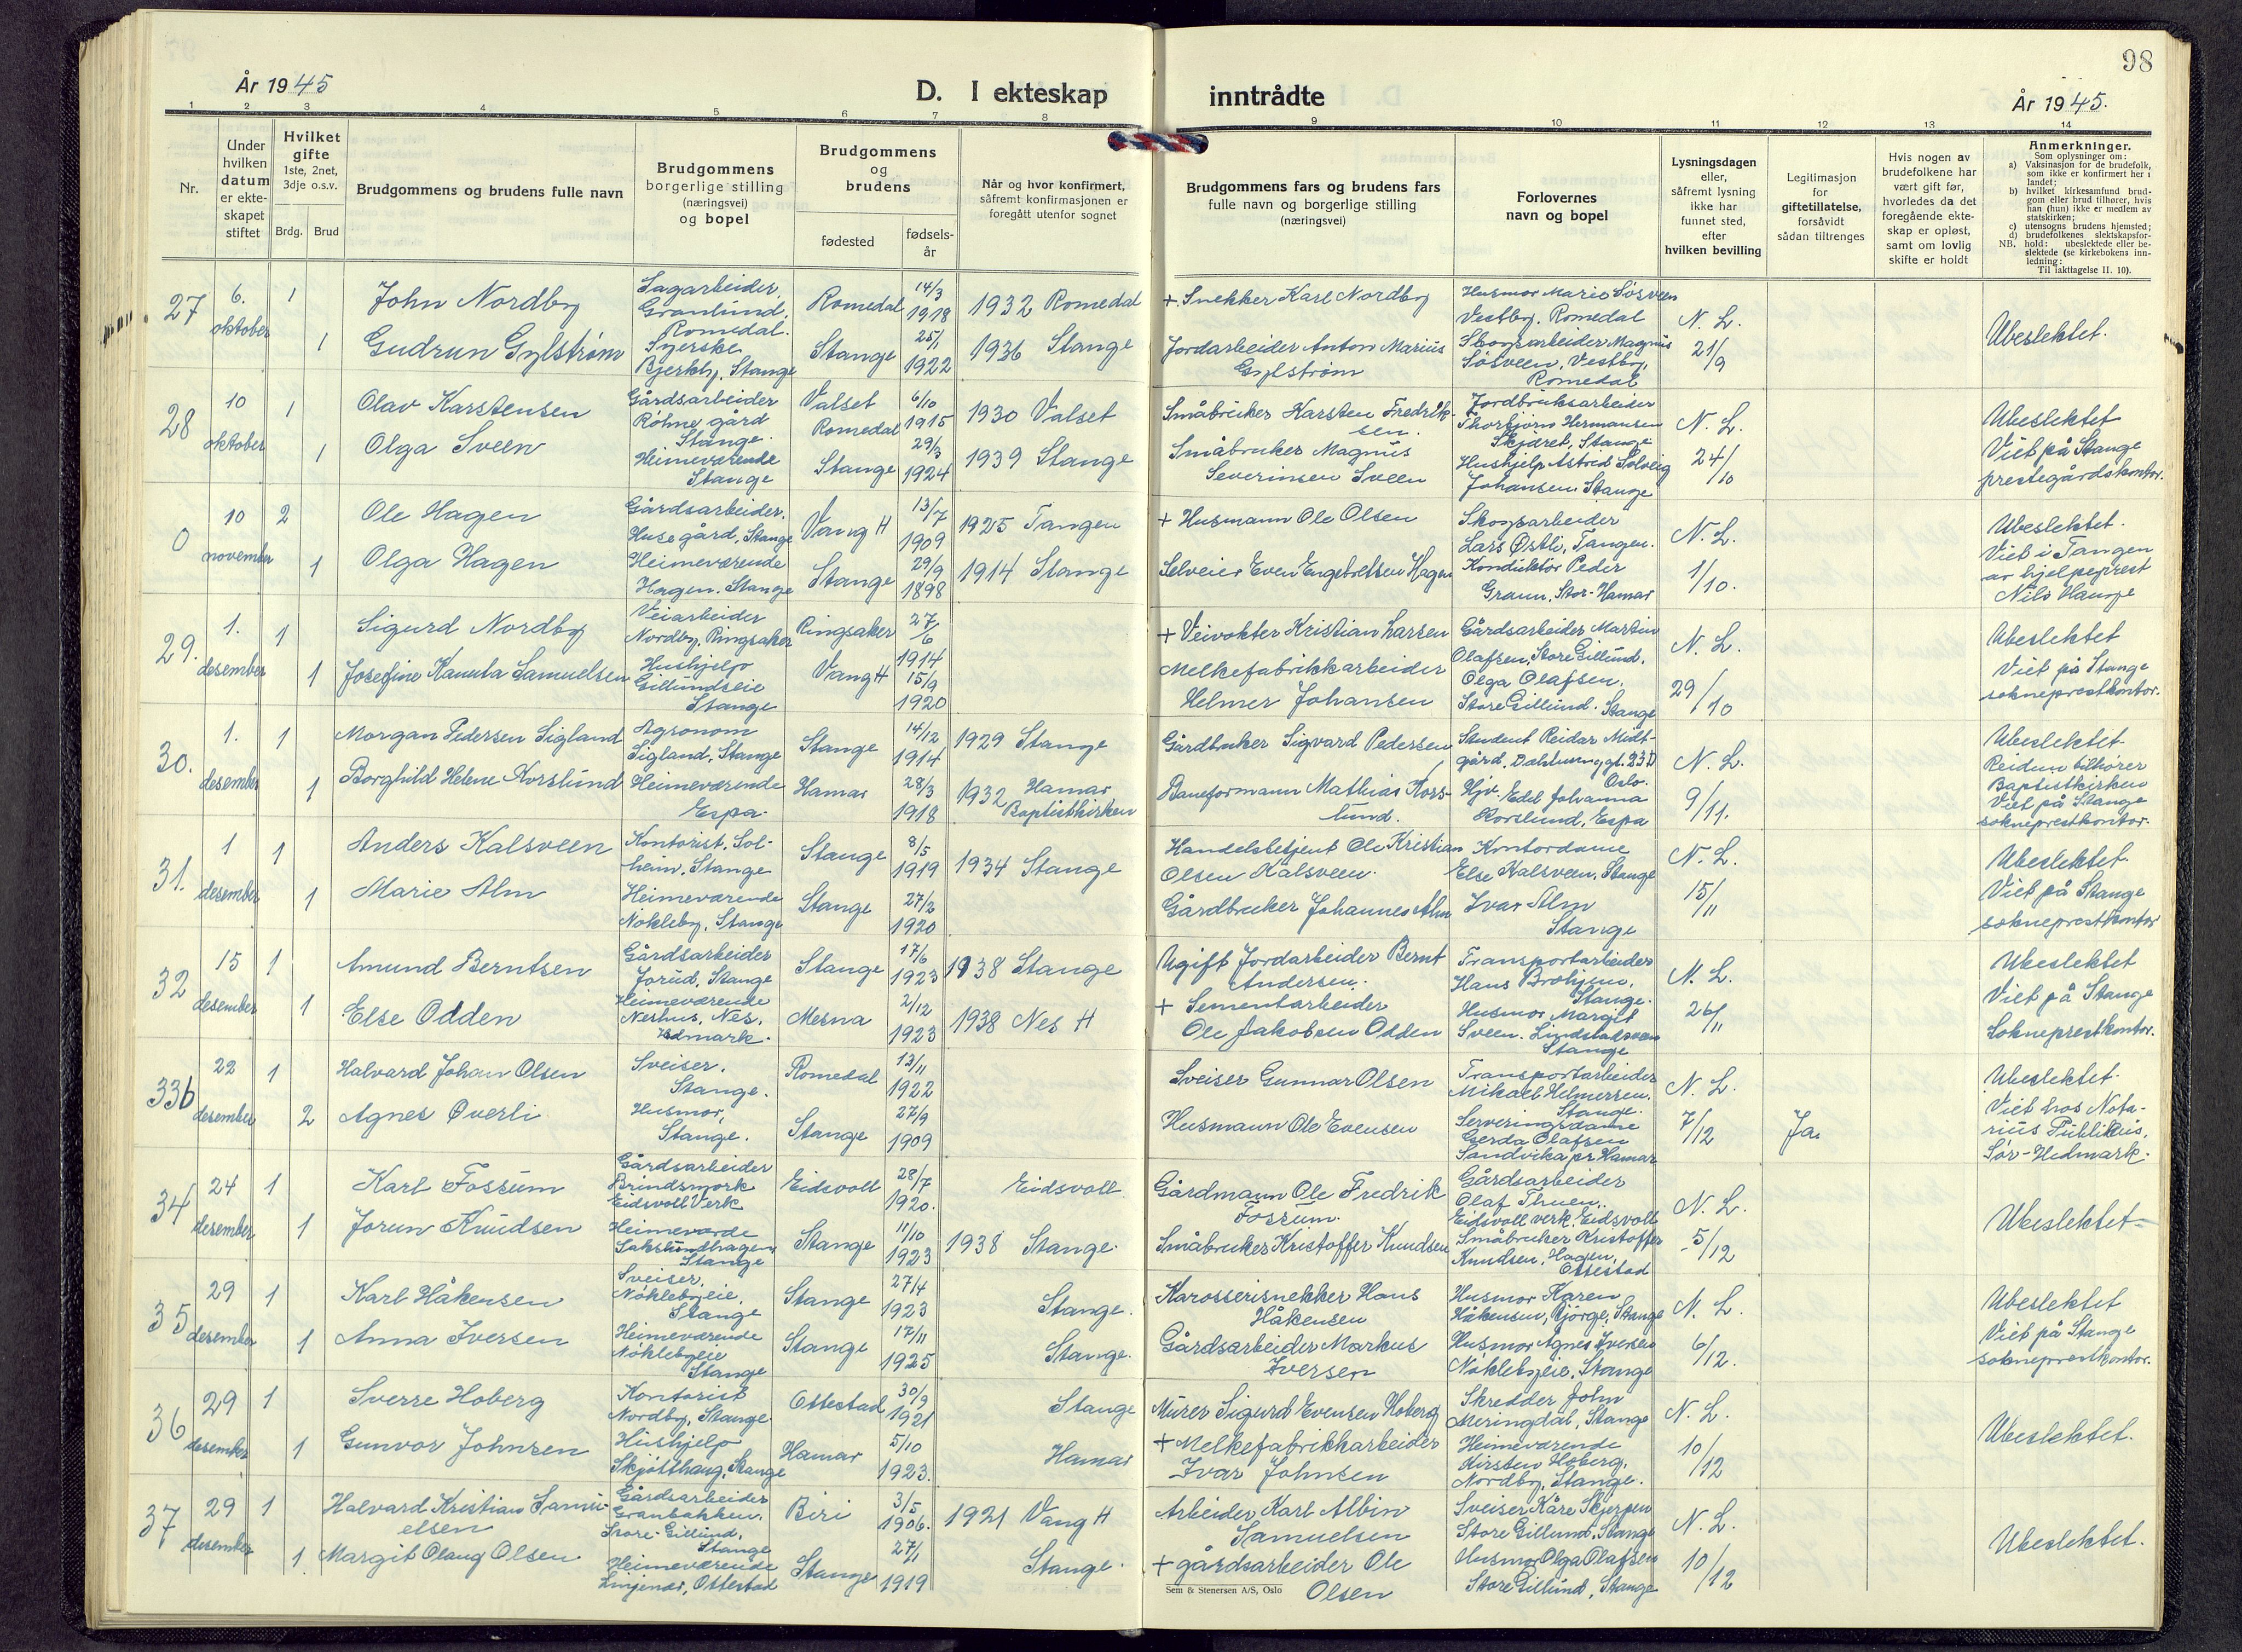 98
År 1945
D. I ekteskap inntrådte
År 1945.
1 2 3 4 5 6 7 8 9 10 11 12 13 14
Nr.
Under hvilken datum er ekteskapet stiftet
Hvilket gifte 1ste, 2net, 3dje o.s.v.
Brdg. Brud
Brudgommens og brudens fulle navn
Brudgommens borgerlige stilling (næringsvei) og bopel
Brudgommens og brudens
fødested
fødsels-år
Når og hvor konfirmert, såfremt konfirmasjonen er foregått utenfor sognet
Brudgommens fars og brudens fars fulle navn og borgerlige stilling (næringsvei)
Forlovernes navn og bopel
Lysningsdagen eller, såfremt lysning ikke har funnet sted, efter hvilken bevilling
Legitimasjon for giftetillatelse, forsåvidt sådan tiltrenges
Hvis nogen av brudefolkene har vært gift før, hvorledes da det foregående ekteskap er opløst, samt om lovlig skifte er holdt
Anmerkninger.
Som oplysninger om:
a) Vaksinasjon for de brudefolk, som ikke er konfirmert her i landet;
b) hvilket kirkesamfund brudgom eller brud tilhører, hvis han (hun) ikke er medlem av statskirken;
c) utensogns brudens hjemsted;
d) brudefolkenes slektskapsforhold: ubeslektede eller beslektede (se kirkebokens innledning:
NB.
Til iakttagelse II. 10).
27 6. oktober 1 John Nordby Sagarbeider, Granlund, Romedal. Romedal 14/3 1918 1932 Romedal + Snekker Karl Nordby Husmor Marie Søsveen Vestby, Romedal N. L. 21/9 Ubeslektet.
1 Gudrun Gylstrøm Syerske Bjerkby, Stange Stange 25/1 1922 1936 Stange Jordarbeider Anton Marius Gylstrøm Skogsarbeider Magnus Søsveen, Vestby, Romedal
28 10 oktober 1 Olav Karstensen Gårdsarbeider Røhne gård Stange. Valset Romedal 6/10 1915 1930 Valset Småbruker Karsten Fredriksen. Jordbruksarbeider Thorbjørn Hermansen Skjæret, Stange N. L. 24/10 Ubeslektet Viet på Stange prestegårdskontor.
1 Olga Sveen Heimeværende Stange Stange 29/3 1924 1939 Stange Småbruker Magnus Severinsen Sveen Hushjelp Astrid Solveig Johansen, Stange
0 10 november 2 Ole Hagen Gårdsarbeider, Huse gård, Stange Vang H 13/7 1909 1925 Tangen + Husmann Ole Olsen Skogsarbeider Lars Østli, Tangen. N. L. 1/10. Ubeslektet. Viet i Tangen av hjelpeprest Nils Hauge
1 Olga Hagen Heimeværende Hagen. Stange Stange 29/9 1898 1914 Stange Selveier Even Engebretsen Hagen Konduktør Peder Graun, Stor-Hamar
29. 1. desember 1 Sigurd Nordby Veiarbeider Nordby, Ringsaker Ringsaker 27/6 1914 + Veivokter Kristian Larsen Gårdsarbeider Martin Olafsen, Store Gillund. N. L. 29/10 Ubeslektet Viet på Stange sokneprestkontor.
1 Josefine Kanuta Samuelsen Hushjelp Gillundseie Stange Vang H 15/9 1920 Melkefabrikkarbeider Helmer Johansen Olga Olafsen, Store Gillund. Stange
30. 1. desember 1 Morgan Pedersen Sigland Agronom Sigland, Stange Stange 14/12 1914 1929 Stange Gårdbruker Sigvard Pedersen Student Reidar Midtgård, gt. 23D Oslo. N. L. 9/11. Ubeslektet. Reidun tilhører Baptistkirken Viet på Stange sokneprestkontor.
1 Borghild Helene Korslund Heimeværende Espa. Hamar 28/3 1918 1932 Hamar Baptistkirken Baneformann Mathias Korslund. Hjv. Edel Johanna Korslund, Espa
31. 1 desember 1 Anders Kalsveen Kontorist, Solheim, Stange Stange 8/5 1919 1934 Stange Handelsbetjent Ole Kristian Olsen Kalsveen. Kontordame Else Kalsveen, Stange N. L. 15/11 Ubeslektet. Viet på Stange sokneprestkontor
1 Marie Alm Heimeværende Nøkleby, Stange Stange 27/2 1920 Gårdbruker Johannes Alm Ivar Alm Stange
32 15 desember 1 Amund Berntsen Gårdsarbeider Jorud, Stange Stange 17/6 1923 1938 Stange Ugift Jordarbeider Bernt Andersen. Transportarbeider Hans Brohjem, Stange. N. L. 26/11 Ubeslektet Viet på Stange Sokneprestkontor.
1 Else Odden Heimeværende Neshus, Nes, Hedmark. Mesna 2/12 1923 1938 Nes H + Sementarbeider Ole Jakobsen Odden Husmor Margit Sveen. Lindstadsveen Stange
33b 22 desember 1 Halvard Johan Olsen Sveiser. Stange. Romedal 13/11 1922 Sveiser Gunnar Olsen Transportarbeider Mikael Helmersen, Stange. N. L. 7/12 Ja. Ubeslektet. Viet hos Notarius Publikus, Sør-Hedmark.
2 Agnes Øverli Husmor, Stange. Stange 27/9 1909 Husmann Ole Evensen Serveringsdame Gerda Olafsen Sandvika pr Hamar
34 24 desember 1 Karl Fossum Gårdsarbeider Brindsmork Eidsvoll Verk Eidsvoll 28/7 1920. Eidsvoll Gårdmann Ole Fredrik Fossum. Gårdsarbeider Olaf Thuen, Eidsvoll verk. Eidsvoll N. L. 5/12 Ubeslektet
1 Jorun Knudsen Heimeværde Sakslundhagen Stange Stange 11/10 1923 1938 Stange. Småbruker Kristoffer Knudsen Småbruker Kristoffer Knudsen, Hagen, Ottestad
35 29 desember 1 Karl Håkensen Sveiser, Nøklebyeie, Stange Stange 27/4 1923 Stange. Karosserisnekker Hans Håkensen Husmor Karen Håkensen, Bjørge, Stange N. L. 6/12. Ubeslektet Viet på Stange sokneprestkontor.
1 Anna Iversen Heimeværende Nøklebyeie Stange Stange 17/11 1925 Stange. Gårdsarbeider Markus Iversen Husmor Agnes Iversen Nøklebyeie, Stange
36 29 desember 1 Sverre Hoberg Kontorist Nordby, Stange. Ottestad 30/9 1921 Stange Murer Sigurd Evensen Hoberg Skredder John Meringdal, Stange N. L. 10/12 Ubeslektet.
1 Gunvor Johnsen Hushjelp Skjøtthaug, Stange Hamar 5/10 1923. Hamar + Melkefabrikkarbeider Ivar Johnsen Heimeværende Kirsten Hoberg, Nordby, Stange.
37 29 desember 1 Halvard Kristian Samuelsen Gårdsarbeider Granbakken, Store-Gillund, Stange Biri 3/5 1906. 1921 Vang H Arbeider Karl Albin Samuelsen Sveiser Kåre Skjerpen Store Gillund, Stange N. L. 10/12 Ubeslektet.
1. Margit Olaug Olsen Heimeværende Linjenar, Ottestad Stange 27/1 1919 Stange. + gårdsarbeider Ole Olsen Husmor Olga Olafsen Store Gillund, Stange
Sem & Stenersen A/S, Oslo